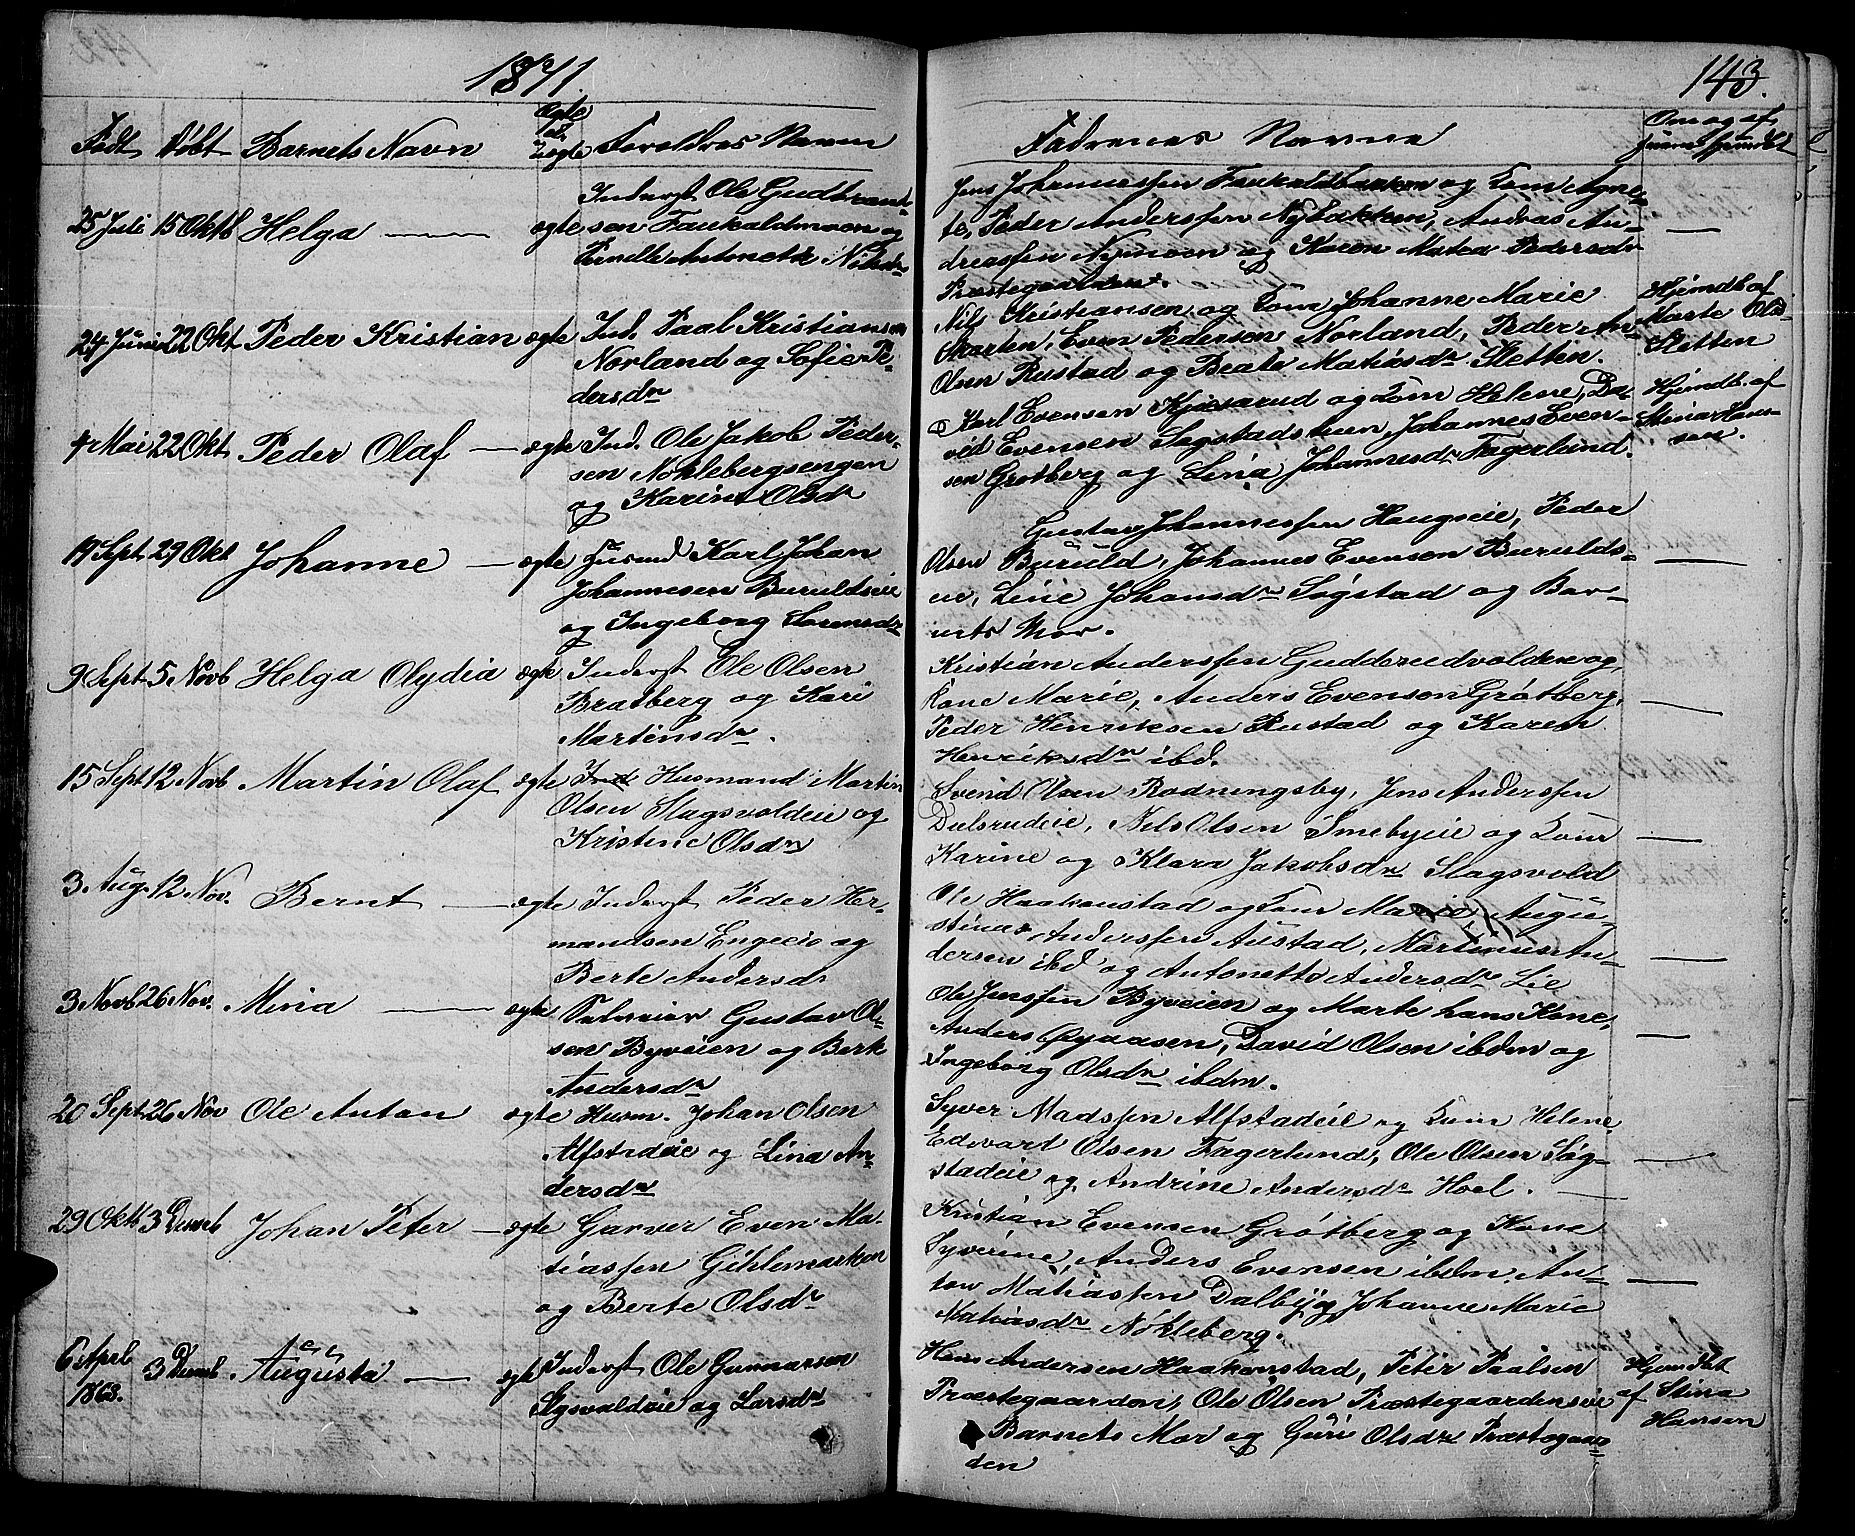 1871.
143.
Født Døbt Barnets Navn Ægte el. Uægte Forældres Navn
Faddernes Navne
Om og af hvem hjemdøbt
25 Juli 15 Oktb Helga — ægte Inderst Ole Gudbrand-
sen Faukaldmoen og
Pernelle Antonette Nilsdr
Jens Johannessen Faukaldbakken og Kone Agne-
te, Peder Anderssen Nybakken, Andreas An-
dreassen Nymoen og Karen Mathea Pedersdr
Præstegaarden. —
24 Juni 22 Okt Peder Kristian ægte Ind. Paal Kristiansen
Norland og Sofie Pe-
dersdr
Nils Kristiansen og Kone Johanne Marie
Skarten, Even Pedersen Norland, Peder An-
Olsen Rustad og Beate Matiasdr Sletten.
Hjemdb af
Marte Ols-
Sletten
4 Mai 22 Okt Peder Olaf — ægte Ind. Ole Jakob Peder-
sen Nøklebergsengen
og Karine Olsdr
Karl Evensen Kjøsarud og Kone Helene, Da-
vid Evensen Søgstadstuen, Johannes Even-
sen Grøtberg og Lina Johannesdr Fagerlund.
Hjemdb. af
Stina Han-
sen.
19 Sept 29 Okt Johanne — ægte Husmd Karl Johan
Johannesen Buruldseie
og Ingeborg Larensdr
Gustav Johannessen Haugseie, Peder
Olsen Buruld, Johannes Evensen Burulds-
eie, Line Johansdr Søgstad og Bar-
nets Mor. —
9 Sept 5 Novb Helga Olydia ægte Inderst Ole Olsen
Bratberg og Kari
Martinsdr.
Kristian Anderssen Gudderudvolden og
Kone Marie, Anders Evensen Grøtberg,
Peder Henriksen Rustad og Karen
Henriksdr ibd. —
15 Sept 12 Novb Martin Olaf ægte Ind Husmand Martin
Olsen Slagsvoldeie og
Kristine Olsdr
Svend Olsen Rødningsby, Jens Anderssen
Dulsrudeie, Nils Olsen Smebyeie og Kone
Karine og Klara Jakobsdr Slagsvold —
3 Aug. 12 Nov. Bernt — ægte Inderst Peder Her-
mandsen Engeeie og
Berte Andersdr
Ole Haakenstad og Kone Marie, Augu-
stinus Anderssen Austad, Martinus An-
dersen ibd og Antonette Andersdr Lie —
3 Novb 26 Nov. Mina — ægte Selveier Gustav Ol-
sen Byveien og Berte
Andersdr
Ole Jenssen Byveien og Marte hans Kone,
Anders Øyaasen, David Olsen ibdm og
Ingeborg Olsdr ibdm. —
20 Sept 26 Nov Ole Anton ægte Husm. Johan Olsen
Alfstadeie og Lina An-
dersdr
Syver Madssen Alfstadeie og Kone Helene,
Edvart Olsen Fagerlund, Ole Olsen Søg-
stadeie og Andrine Andersdr Hoel. —
29 Oktb 3 Decmb Johan Peter — ægte Garver Even Ma-
tiassen Gihlemarken
og Berte Olsdr
Kristian Evensen Grøtberg og Kone
Syverine, Anders Evensen ibdm, An-
ton Matiassen Dalby og Johanne Marie
Matiasdr Nøkleberg. —
6 April
1863. 3 Decmb. Augusta — ægte Inderst Ole Gunnarsen
Slgsvoldeie og Larsdr
Hans Andersen Haakenstad, Peter Paalsen
Præstegaarden, Ole Olsen Præstegaardenseie
Barnets Mor og Guri Olsdr Præstegaar-
den
Hjemdøbt
af Stina
Hansen